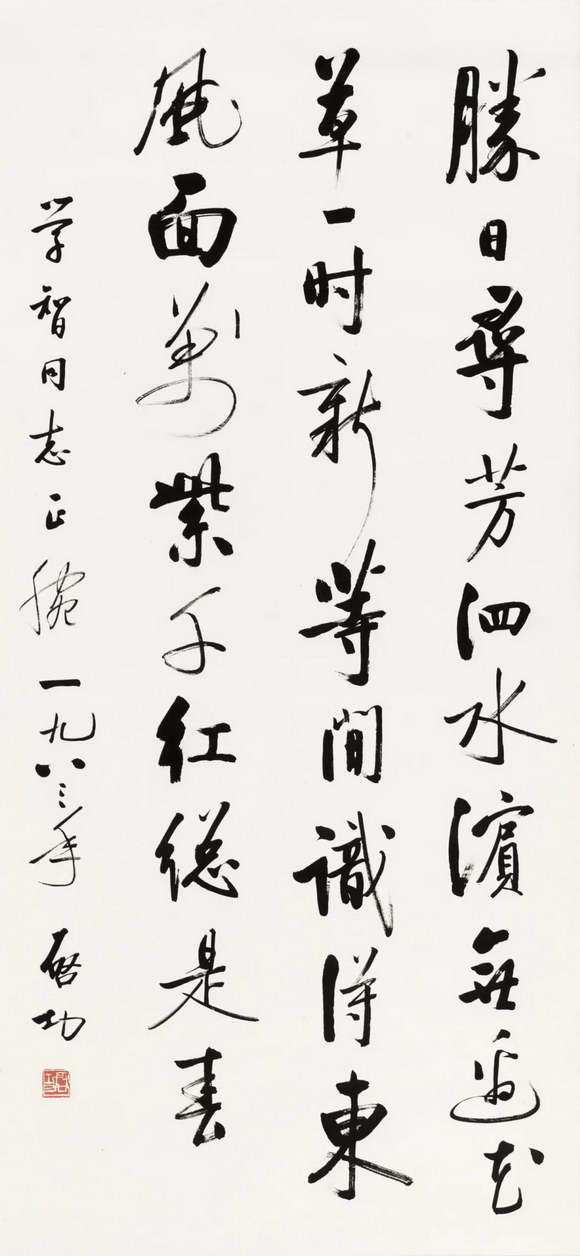 勝日尋芳泗水濱無邊花
草一时新等閒識得東
風面萬紫千紅総是春
学智同志正腕 一九八三年 啓功